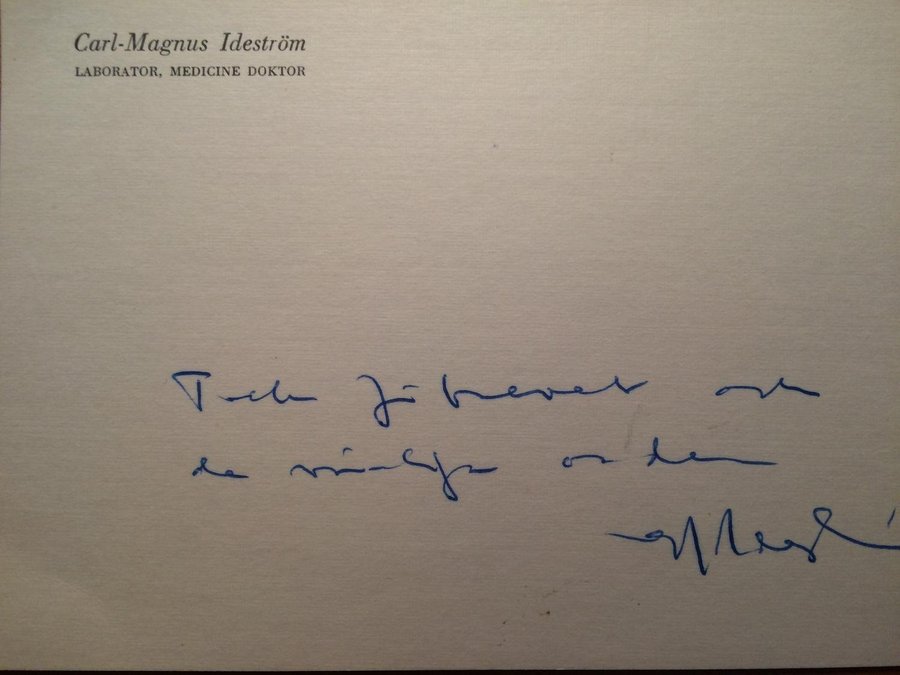 Carl-Magnus Ideström
LABORATOR, MEDICINE DOKTOR
Tack för brevet och
de vänliga orden